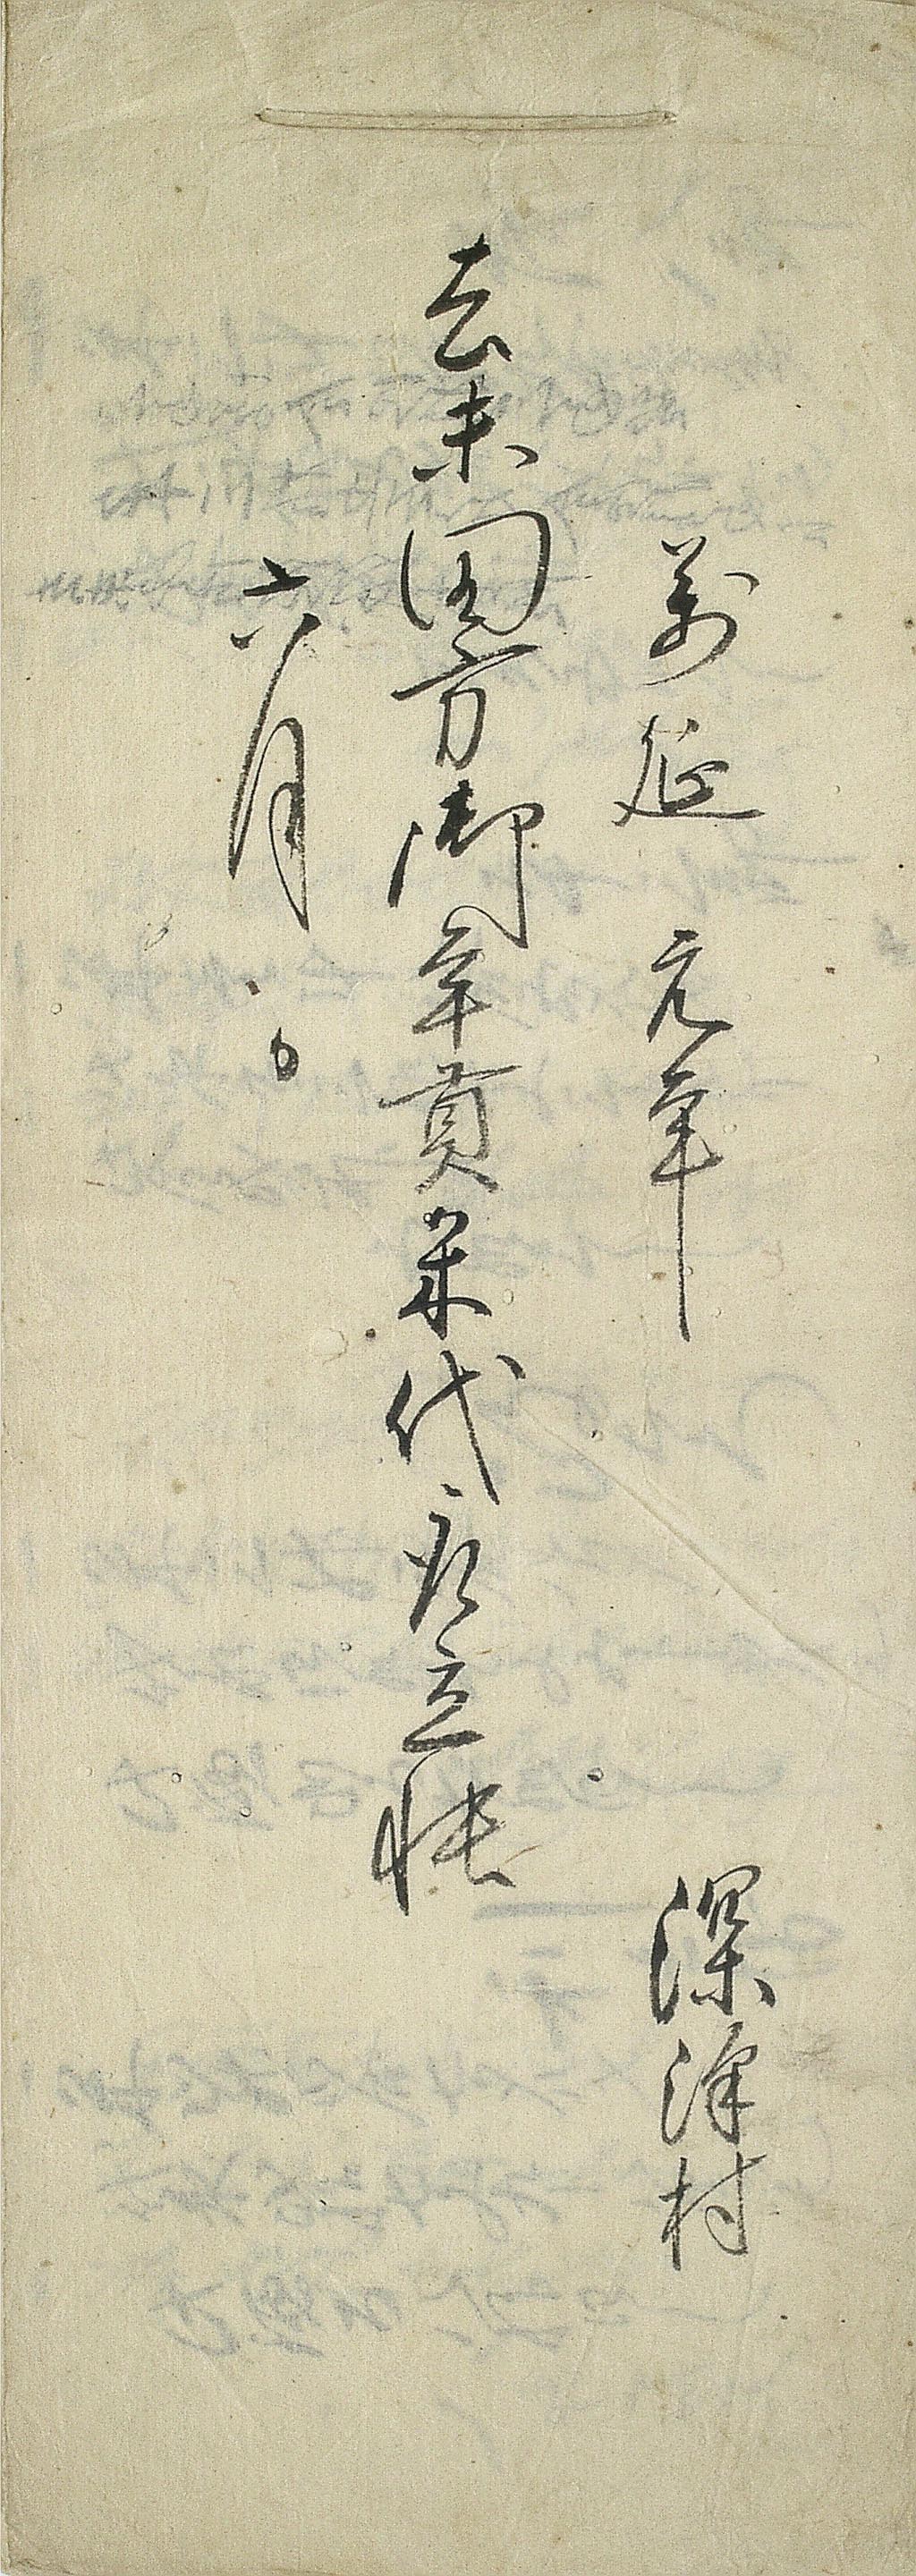 萬延元年　深津村
去未田方御年貢米代取立帳
六月　日